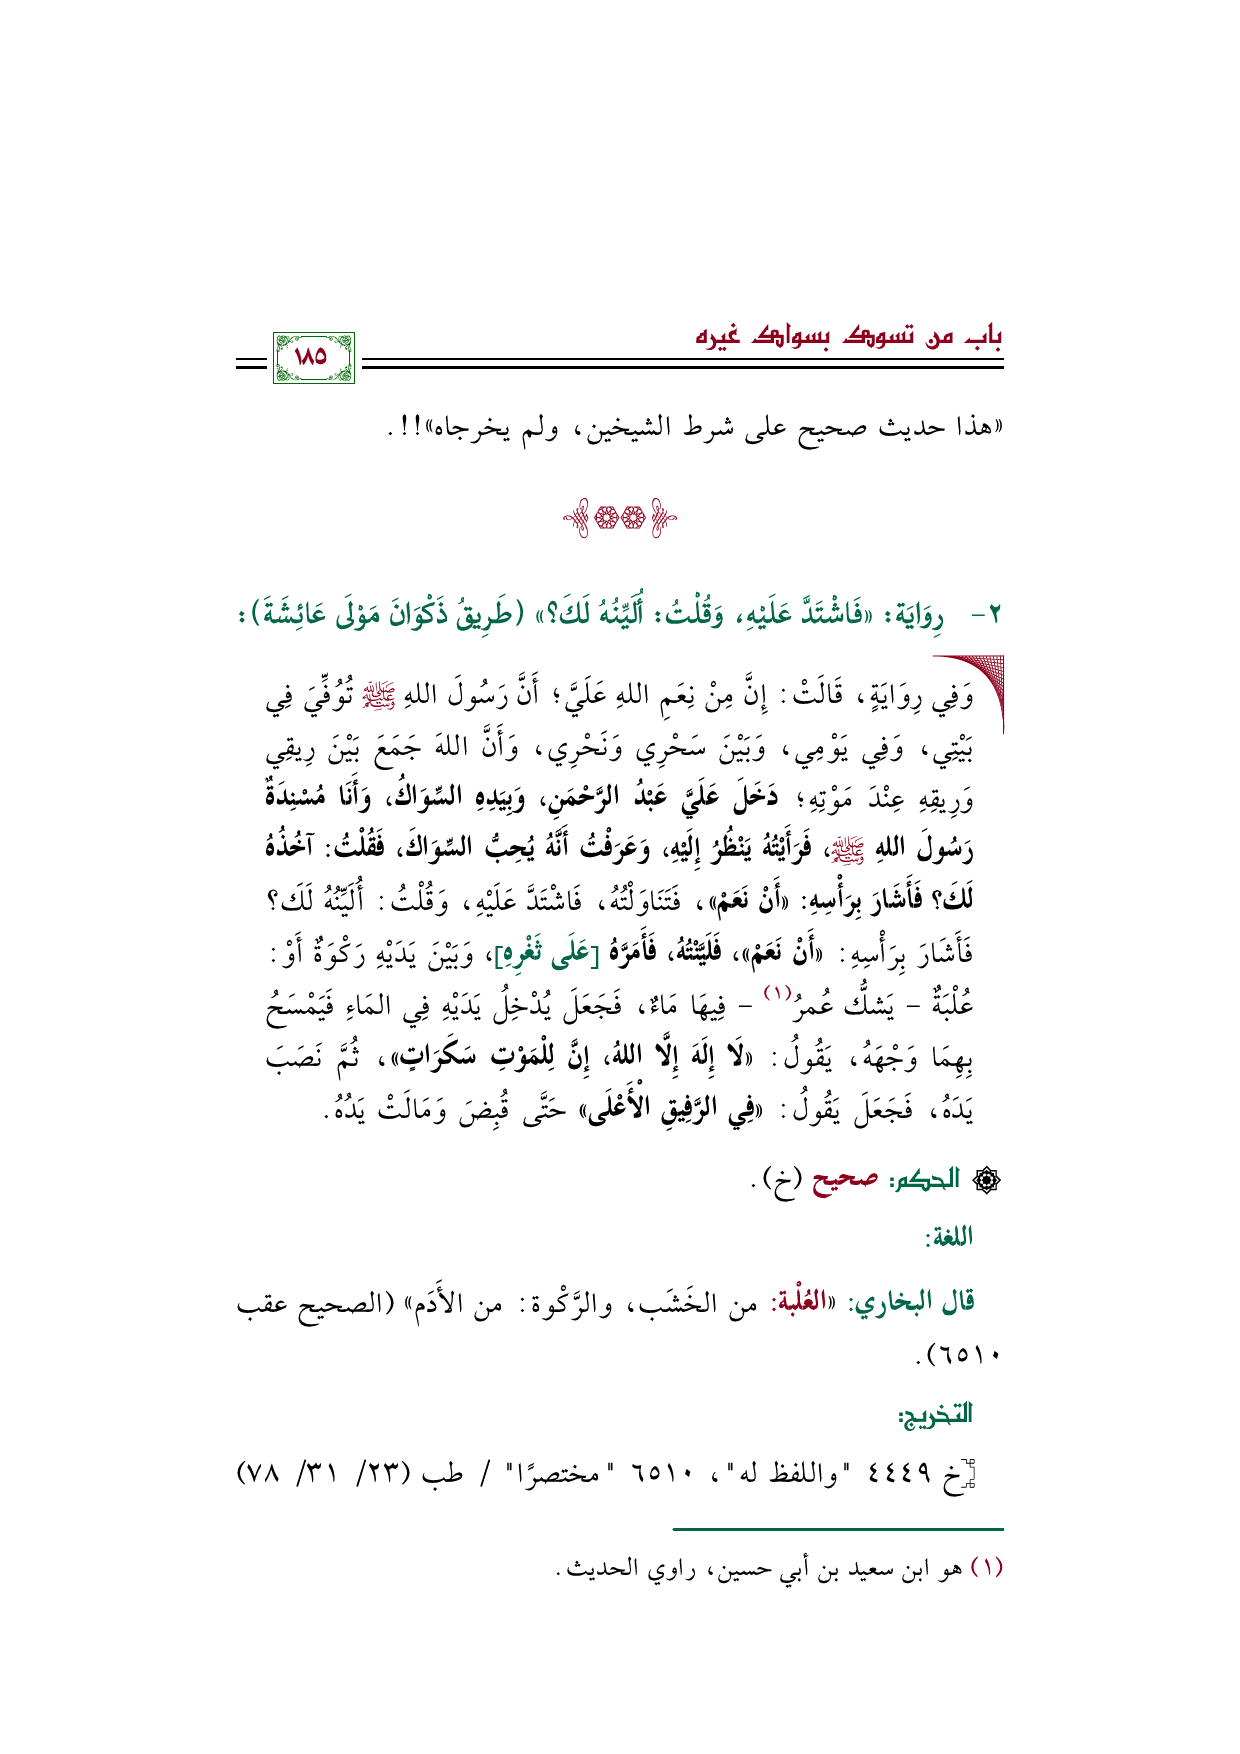 باب من تسوك بسواك غيره
١٨٥
«هذا حديث صحيح على شرط الشيخين، ولم يخرجاه»!!.
٢- رِوَايَة: «فَاشْتَدَّ عَلَيْهِ، وَقُلْتُ: أُلَيِّنُهُ لَكَ؟» (طَرِيقُ ذَكْوَانَ مَوْلَى عَائِشَةَ):
وَفِي رِوَايَةٍ، قَالَتْ: إِنَّ مِنْ نِعَمِ اللهِ عَلَيَّ؛ أَنَّ رَسُولَ اللهِ ﷺ تُوُفِّيَ فِي
بَيْتِي، وَفِي يَوْمِي، وَبَيْنَ سَحْرِي وَنَحْرِي، وَأَنَّ اللهَ جَمَعَ بَيْنَ رِيقِي
وَرِيقِهِ عِنْدَ مَوْتِهِ؛ دَخَلَ عَلَيَّ عَبْدُ الرَّحْمَنِ، وَبِيَدِهِ السِّوَاكُ، وَأَنَا مُسْنِدَةٌ
رَسُولَ اللهِ ﷺ، فَرَأَيْتُهُ يَنْظُرُ إِلَيْهِ، وَعَرَفْتُ أَنَّهُ يُحِبُّ السِّوَاكَ، فَقُلْتُ: آخُذُهُ
لَكَ؟ فَأَشَارَ بِرَأْسِهِ: «أَنْ نَعَمْ»، فَتَنَاوَلْتُهُ، فَاشْتَدَّ عَلَيْهِ، وَقُلْتُ: أُلَيِّنُهُ لَكَ؟
فَأَشَارَ بِرَأْسِهِ: «أَنْ نَعَمْ»، فَلَيَّنْتُهُ، فَأَمَرَّهُ [عَلَى ثَغْرِهِ]، وَبَيْنَ يَدَيْهِ رَكْوَةٌ أَوْ:
عُلْبَةٌ - يَشكُّ عُمرُ(١) - فِيهَا مَاءٌ، فَجَعَلَ يُدْخِلُ يَدَيْهِ فِي المَاءِ فَيَمْسَحُ
بِهِمَا وَجْهَهُ، يَقُولُ: «لَا إِلَهَ إِلَّا اللهُ، إِنَّ لِلْمَوْتِ سَكَرَاتٍ»، ثُمَّ نَصَبَ
يَدَهُ، فَجَعَلَ يَقُولُ: «فِي الرَّفِيقِ الْأَعْلَى» حَتَّى قُبِضَ وَمَالَتْ يَدُهُ.
الحكم: صحيح (خ).
اللغة:
قال البخاري: «العُلْبة: من الخَشَب، والرَّكْوة: من الأَدَم» (الصحيح عقب
٦٥١٠).
التخريج:
[خ ٤٤٤٩ "واللفظ له"، ٦٥١٠ "مختصرًا" / طب (٢٣/ ٣١/ ٧٨)
(١) هو ابن سعيد بن أبي حسين، راوي الحديث.